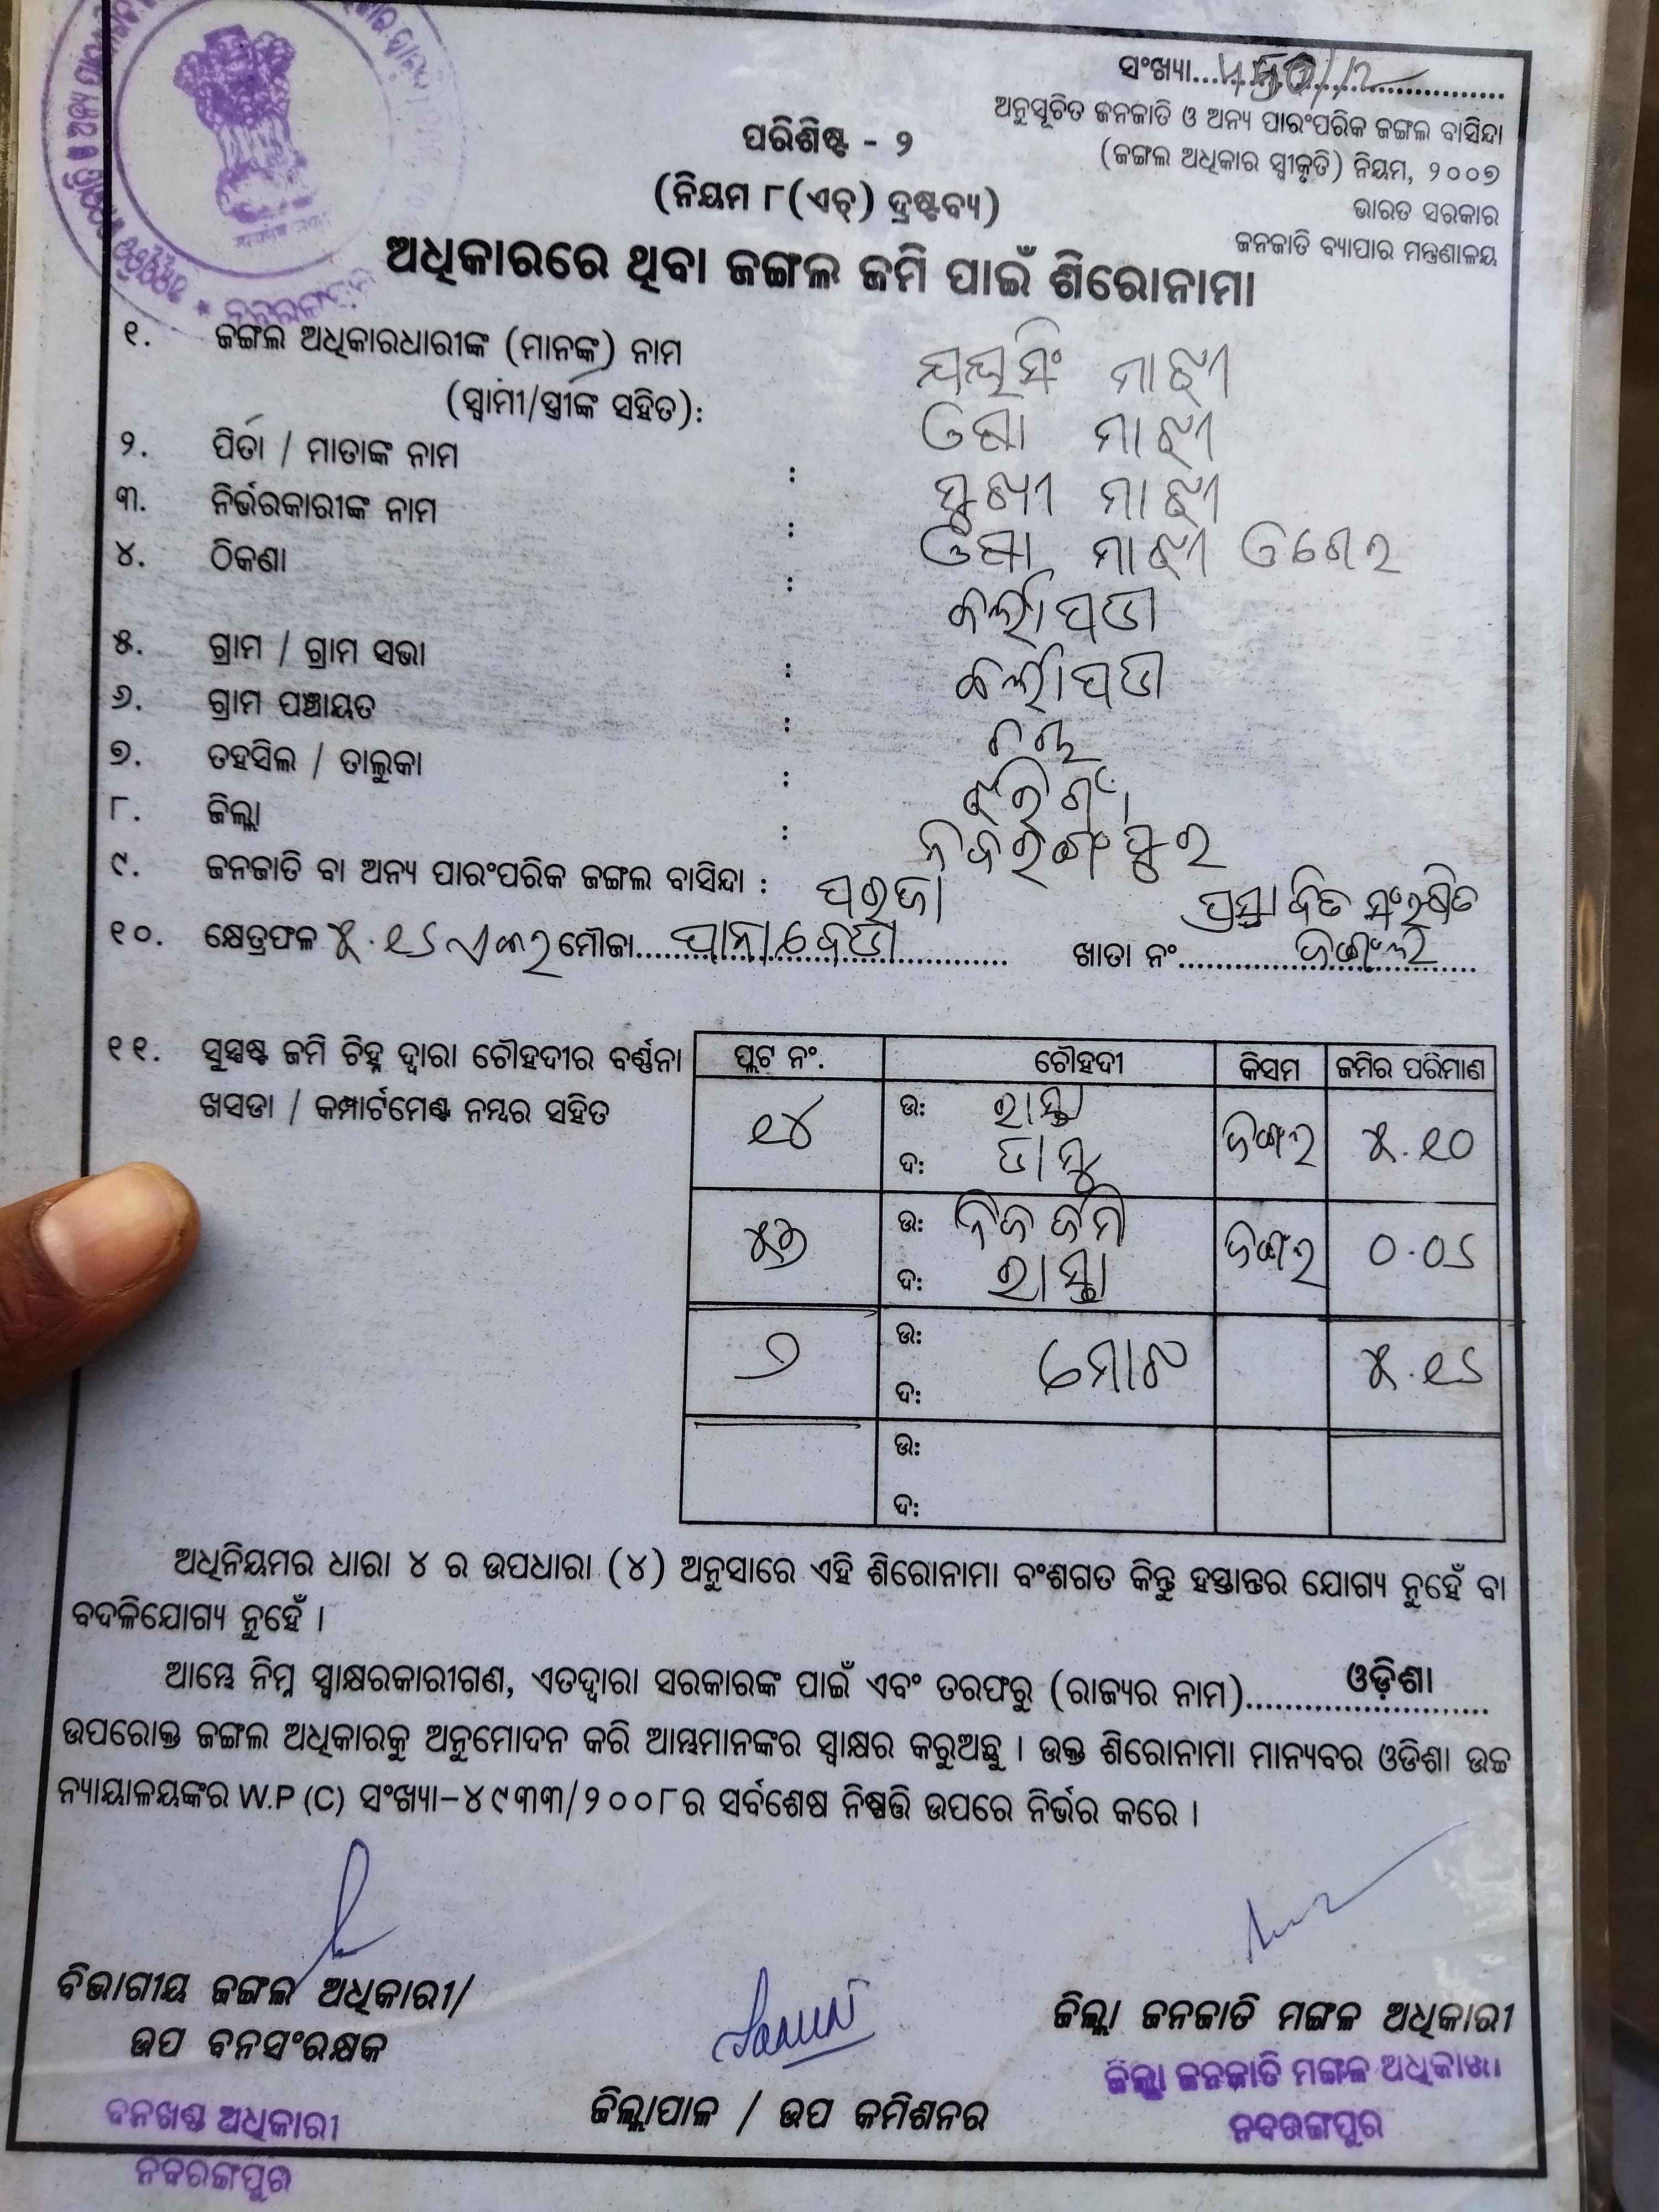 ସଂଖ୍ୟା
ଅନୁସୂଚିତ ଜନଜାତି ଓ ଅନ୍ୟ ପାରଂପରିକ ଜଙ୍ଗଲ ବାସିନ୍ଦା
(ଜଙ୍ଗଲ ଅଧିକାର ସ୍ୱୀକୃତି) ନିୟମ, ୨୦୦୭
ଭାରତ ସରକାର
ଜନଜାତି ବ୍ୟାପାର ମନ୍ତ୍ରଣାଳୟ
ପରିଶିଷ୍ଟ - ୨
(ନିୟମ ୮(ଏଚ୍) ଦ୍ରଷ୍ଟବ୍ୟ)
ଅଧିକାରରେ ଥିବା ଜଙ୍ଗଲ ଜମି ପାଇଁ ଶିରୋନାମା
୧. ଜଙ୍ଗଲ ଅଧିକାରଧାରୀଙ୍କ (ମାନଙ୍କ) ନାମ ମାଝୀ
(ସ୍ୱାମୀ/ସ୍ତ୍ରୀଙ୍କ ସହିତ):
୨. ପିତା / ମାତାଙ୍କ ନାମ : ମାଝୀ
୩. ନିର୍ଭରକାରୀଙ୍କ ନାମ : ମାଝୀ
୪. ଠିକଣା : ମାଝୀ
୫. ଗ୍ରାମ / ଗ୍ରାମ ସଭା :
୬. ଗ୍ରାମ ପଞ୍ଚାୟତ :
୭. ତହସିଲ / ତାଲୁକା : ଝରିଗାଁ
୮. ଜିଲ୍ଲା : ନବରଙ୍ଗପୁର
୯. ଜନଜାତି ବା ଅନ୍ୟ ପାରଂପରିକ ଜଙ୍ଗଲ ବାସିନ୍ଦା : ପରଜା ପ୍ରସ୍ତାବିତ ସଂରକ୍ଷିତ
୧୦. କ୍ଷେତ୍ରଫଳ ୫.୧୫ ଏକର ମୌଜା ଖାତା ନଂ ଜଙ୍ଗଲ
୧୧. ସୁସ୍ପଷ୍ଟ ଜମି ଚିହ୍ନ ଦ୍ୱାରା ଚୌହଦୀର ବର୍ଣ୍ଣନା
ଖସଡା / କମ୍ପାର୍ଟମେଣ୍ଟ ନମ୍ବର ସହିତ
ପ୍ଲଟ ନଂ. ଚୌହଦୀ କିସମ ଜମିର ପରିମାଣ
୧୪ ଉ: ରାସ୍ତା ଜଙ୍ଗଲ ୫.୧୦
ଦ:
୫୬ ଉ: ନିଜ ଜମି ଜଙ୍ଗଲ ୦.୦୫
ଦ: ରାସ୍ତା
୨ ଉ: ମୋଟ ୫.୧୫
ଦ:
ଉ:
ଦ:
ଅଧିନିୟମର ଧାରା ୪ ର ଉପଧାରା (୪) ଅନୁସାରେ ଏହି ଶିରୋନାମା ବଂଶଗତ କିନ୍ତୁ ହସ୍ତାନ୍ତର ଯୋଗ୍ୟ ନୁହେଁ ବା
ବଦଳିଯୋଗ୍ୟ ନୁହେଁ ।
ଆମ୍ଭେ ନିମ୍ନ ସ୍ୱାକ୍ଷରକାରୀଗଣ, ଏତଦ୍ୱାରା ସରକାରଙ୍କ ପାଇଁ ଏବଂ ତରଫରୁ (ରାଜ୍ୟର ନାମ) ଓଡ଼ିଶା
ଉପରୋକ୍ତ ଜଙ୍ଗଲ ଅଧିକାରକୁ ଅନୁମୋଦନ କରି ଆମ୍ଭମାନଙ୍କର ସ୍ୱାକ୍ଷର କରୁଅଛୁ । ଉକ୍ତ ଶିରୋନାମା ମାନ୍ୟବର ଓଡିଶା ଉଚ୍ଚ
ନ୍ୟାୟାଳୟଙ୍କର W.P (C) ସଂଖ୍ୟା-୪୯୩୩/୨୦୦୮ର ସର୍ବଶେଷ ନିଷ୍ପତ୍ତି ଉପରେ ନିର୍ଭର କରେ ।
ବିଭାଗୀୟ ଜଙ୍ଗଲ ଅଧିକାରୀ/
ଉପ ବନସଂରକ୍ଷକ
ବନଖଣ୍ଡ ଅଧିକାରୀ
ନବରଙ୍ଗପୁର
ଜିଲ୍ଲାପାଳ / ଉପ କମିଶନର
ଜିଲ୍ଲା ଜନଜାତି ମଙ୍ଗଳ ଅଧିକାରୀ
ଜିଲ୍ଲା ଜନଜାତି ମଙ୍ଗଳ ଅଧିକାରୀ
ନବରଙ୍ଗପୁର